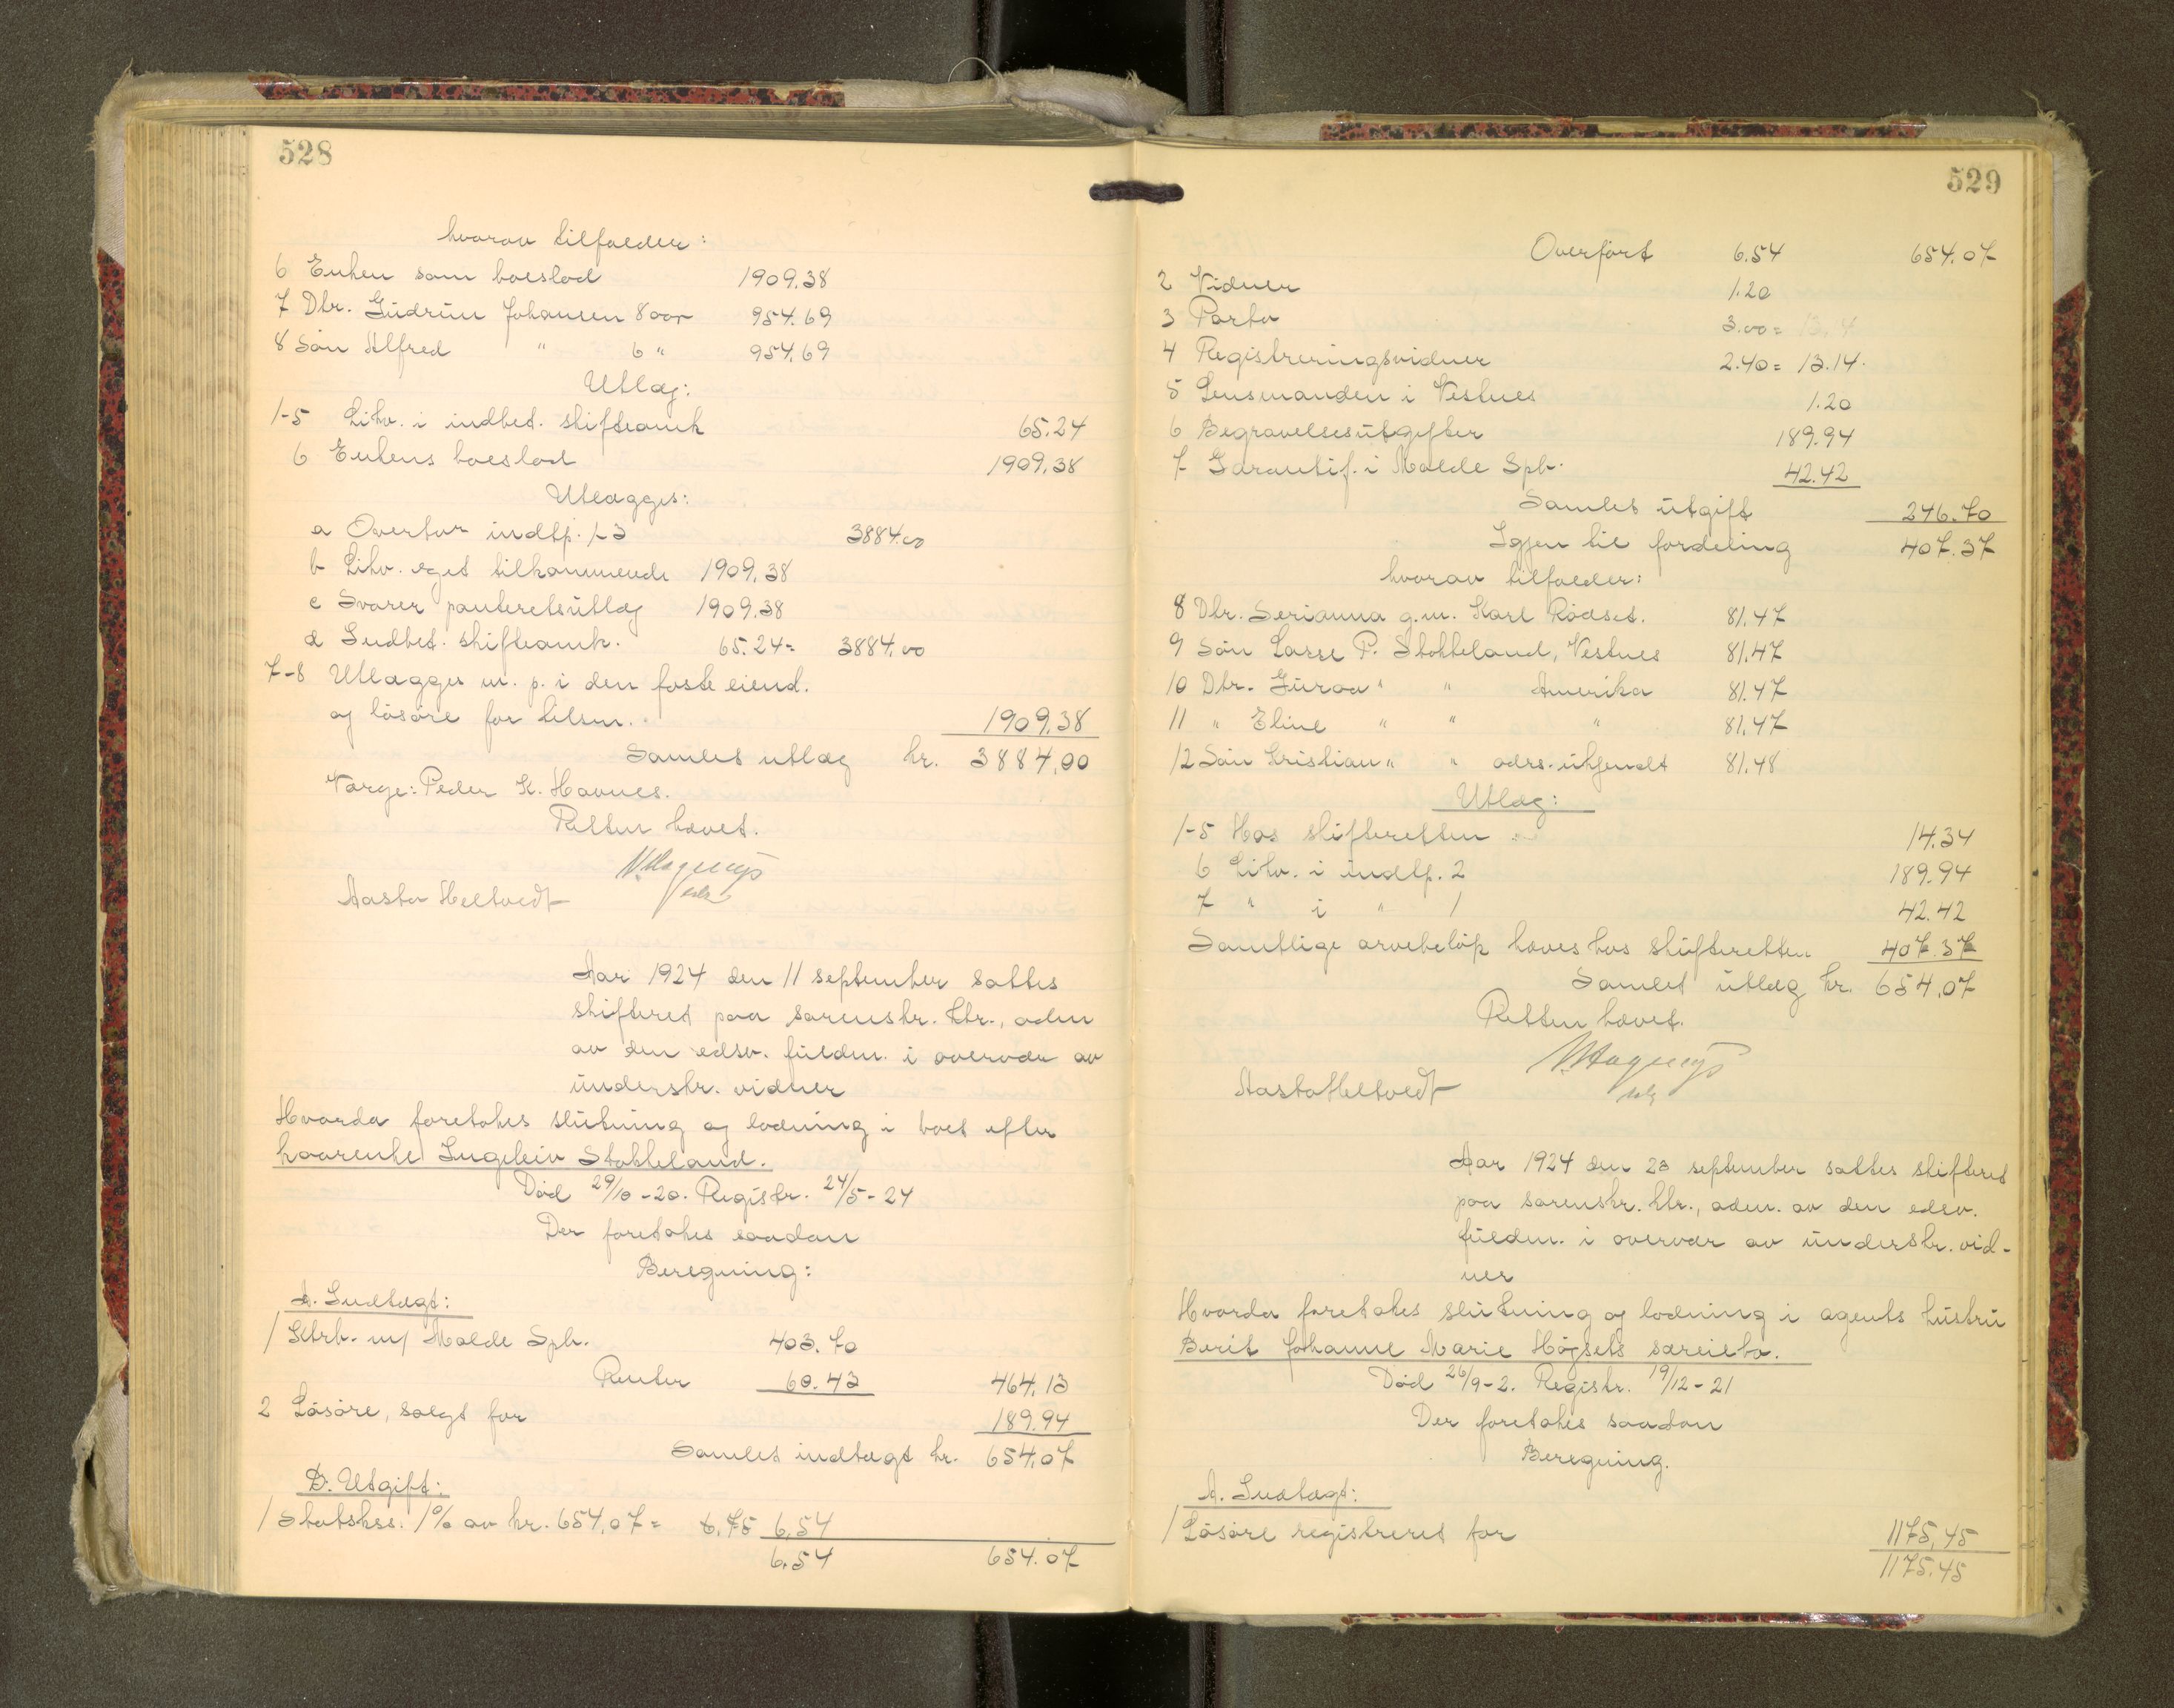 528
hvorav tilfalder:
6 Enken som boeslod 1909.38
7 Dtr. Gudrun Johansen 8 aar 954.69
8 Søn Alfred " 6 " 954.69
Utlæg:
1-5 Litv. i indbet. skifteomk 65.24
6 Enkens boeslod 1909.38
Utlægges:
a Overtar indtp. 1-3 3884.00
b Litv. eget tilkommende 1909.38
c Svarer panteretsutlæg 1909.38
d Indbet. skifteomk. 65.24= 3884.00
7-8 Utlægges m. p. i den faste eiend.
og løsøre for tilsm. 1909.38
Samlet utlæg kr. 3884.00
Værge: Peder K. Havnes.
Retten hævet.
Aasta Heltvedt
Aar 1924 den 11 september sattes
skifteret paa sorenskr. ktr., adm
av den edsv. fuldm. i overvær av
underskr. vidner
Hvorda foretokes slutning og lodning i boet efter
kaarenke Ingelein Stokkeland.
Død 29/10-20. Registr. 24/5-24
Der foretokes saadan
Beregning:
A. Indtægt:
1 Ktrb. m/ Molde Spb. 403.70
Renter 60.43 464.13
2 Løsøre, solgt for 189.94
Samlet indtægt kr. 654.07
B. Utgift:
1 Statskss. 1% av kr. 654.07= 6.75 6.54
6.54 654.07
529
Overført 6.54 654.07
2 Vidner 1.20
3 Porto 3.00=
4 Registreringsvidner 2.40= 13.14.
5 Lensmanden i Vestnes 1.20
6 Begravelsesutgifter 189.94
7 Garantif. i Molde Spb. 42.42
Samlet utgift 246.70
Igjen til fordeling 407.37
hvorav tilfalder:
8 Dtr. Serianna g.m. Karl Rødset. 81.47
9 Søn Lasse P. Stokkeland, Vestnes 81.47
10 Dtr. Guroa " " Amerika 81.47
11 " Eline " " " 81.47
12 Søn Kristian " " adrs. ukjendt 81.48
Utlæg:
1-5 Hos skifteretten 14.34
6 Litv. i indtp. 2 189.94
7 " i " 1 42.42
Samtlige arvebeløp hæves hos skifteretten 407.37
Samlet utlæg kr. 654.07
Retten hævet.
Aasta Heltvedt
Aar 1924 den 23 september sattes skifteret
paa sorenskr. ktr., adm. av den edsv.
fuldm. i overvær av underskr. vid-
ner
Hvorda foretokes slutning og lodning i agents hustru
Berit Johanne Marie Høgsets særeiebo.
Død 26/9-2. Registr. 19/12-21
Der foretokes saadan
Beregning.
A. Indtægt:
1 Løsøre registreret for 1175.45
1175.45